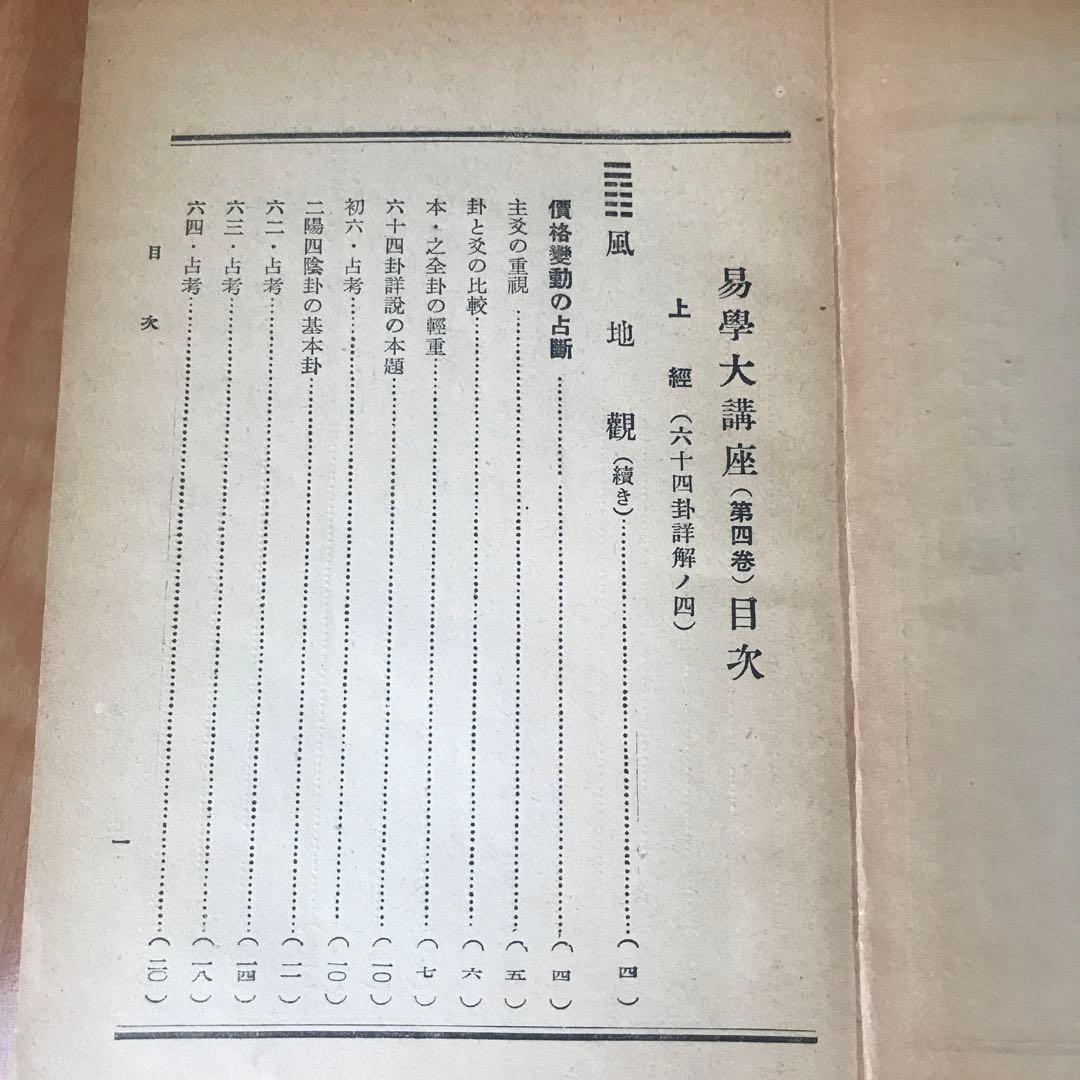 易學大講座(第四卷)目次
上經(六十四卦詳解ノ四)
風地觀(續き)……(四)
價格變動の占斷……(四)
主爻の重視……(五)
卦と爻の比較……(六)
本・之全卦の輕重……(七)
六十四卦詳說の本題……(一〇)
初六・占考……(一〇)
二陽四陰卦の基本卦……(一一)
六二・占考……(一四)
六三・占考……(一八)
六四・占考……(二〇)
目次
一